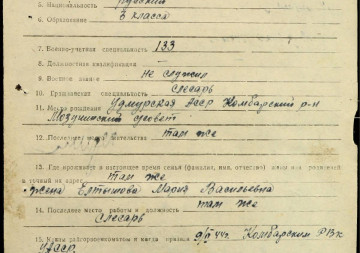 5. Национальность русский
6. Образование 6 класса
7. Военно-учетная специальность 133
8. Должностная квалификация —
9. Военное звание не служил
10. Гражданская специальность Слесарь
11. Место рождения Удмурская АССР Камбарский р-н
совет
12. Последнее место жительства там же
13. Где проживает в настоящее время семья (фамилия, имя, отчество) жены или родителей
и точный их адрес там же
жена Елтышова Мария Васильевна
там же
14. Последнее место работы и должность
Слесарь
15. Каким райгорвоенкоматом и когда призван Камбарским РВК
УАССР